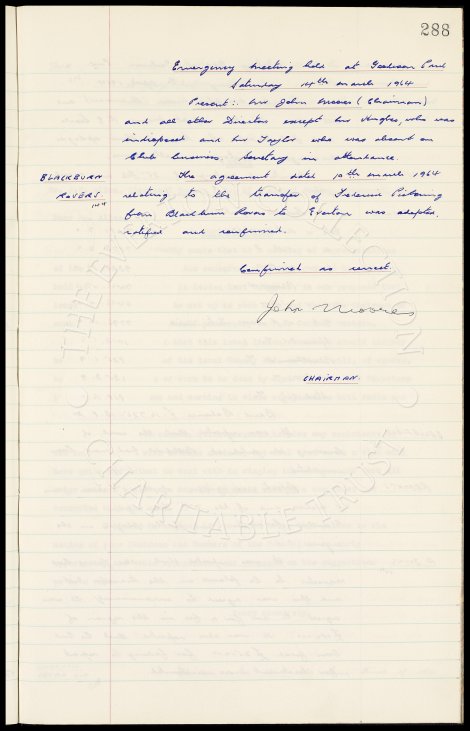 288
Emergency meeting held at Goodison Park
Saturday 14th March 1964
Present:- Mr John Moores (Chairman)
and all other Directors except Mr Hughes, who was
indisposed and Mr Taylor who was absent on
Club business. Secretary in attendance.
BLACKBURN
ROVERS.
The agreement dated 10th March 1964
relating to the transfer of Frederick Pickering
from Blackburn Rovers to Everton was adopted,
ratified and confirmed.
Confirmed as correct.
John Moores
CHAIRMAN.
THE EVERTON COLLECTION
CHARITABLE TRUST